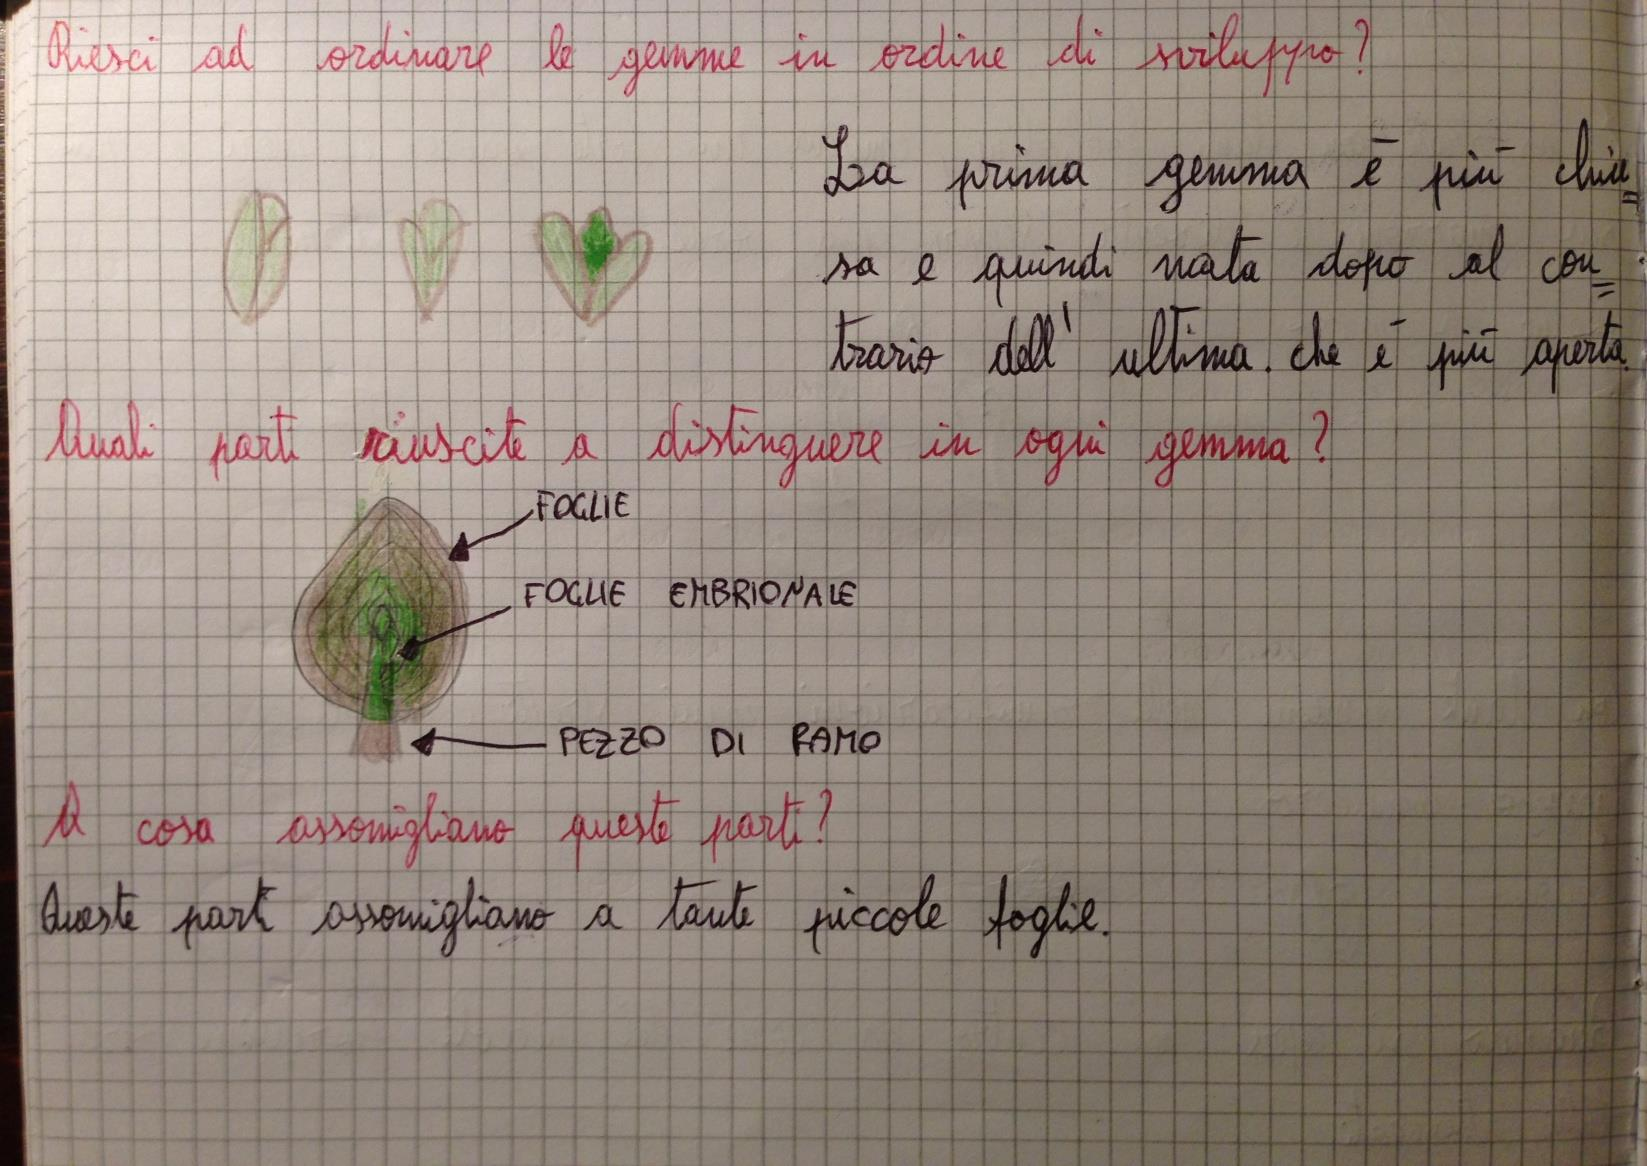 Riesci ad ordinare le gemme in ordine di sviluppo?
La prima gemma è più chiu=
sa e quindi nata dopo al con=
trario dell'ultima. che è più aperta.
Quali parti riuscite a distinguere in ogni gemma?
FOGLIE
FOGLIE EMBRIONALE
PEZZO DI RAMO
A cosa assomigliano queste parti?
Queste parti assomigliano a tante piccole foglie.